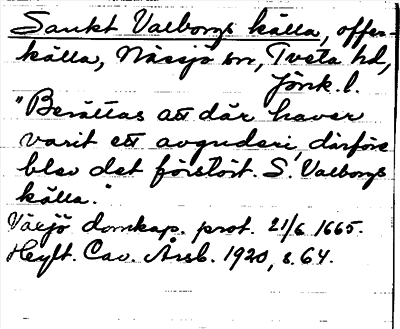 Sankt Valborgs källa, offer-
källa, Nässjö sn, Tveta hd,
Jönk. l.
"Berättas att där haver
varit ett avguderi, därföre
blev det förstört. S. Valborgs
källa."
Växjö domkap. prot. 21/6 1665.
Heylt. Cav. Årsb. 1920, s. 64.